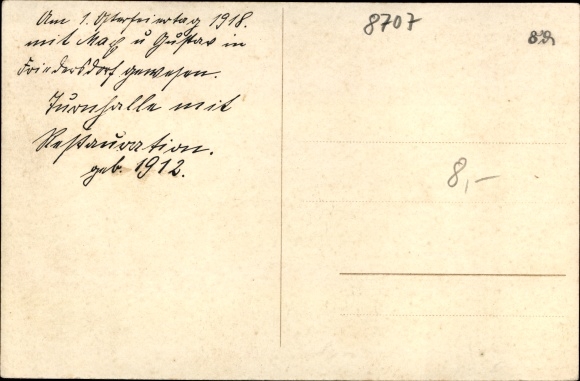 Am 1. Osterfeiertag 1918.
mit Max u Gustav in
Friedersdorf gewesen.
Turnhalle mit
Restauration.
geb. 1912.
8707
8,–